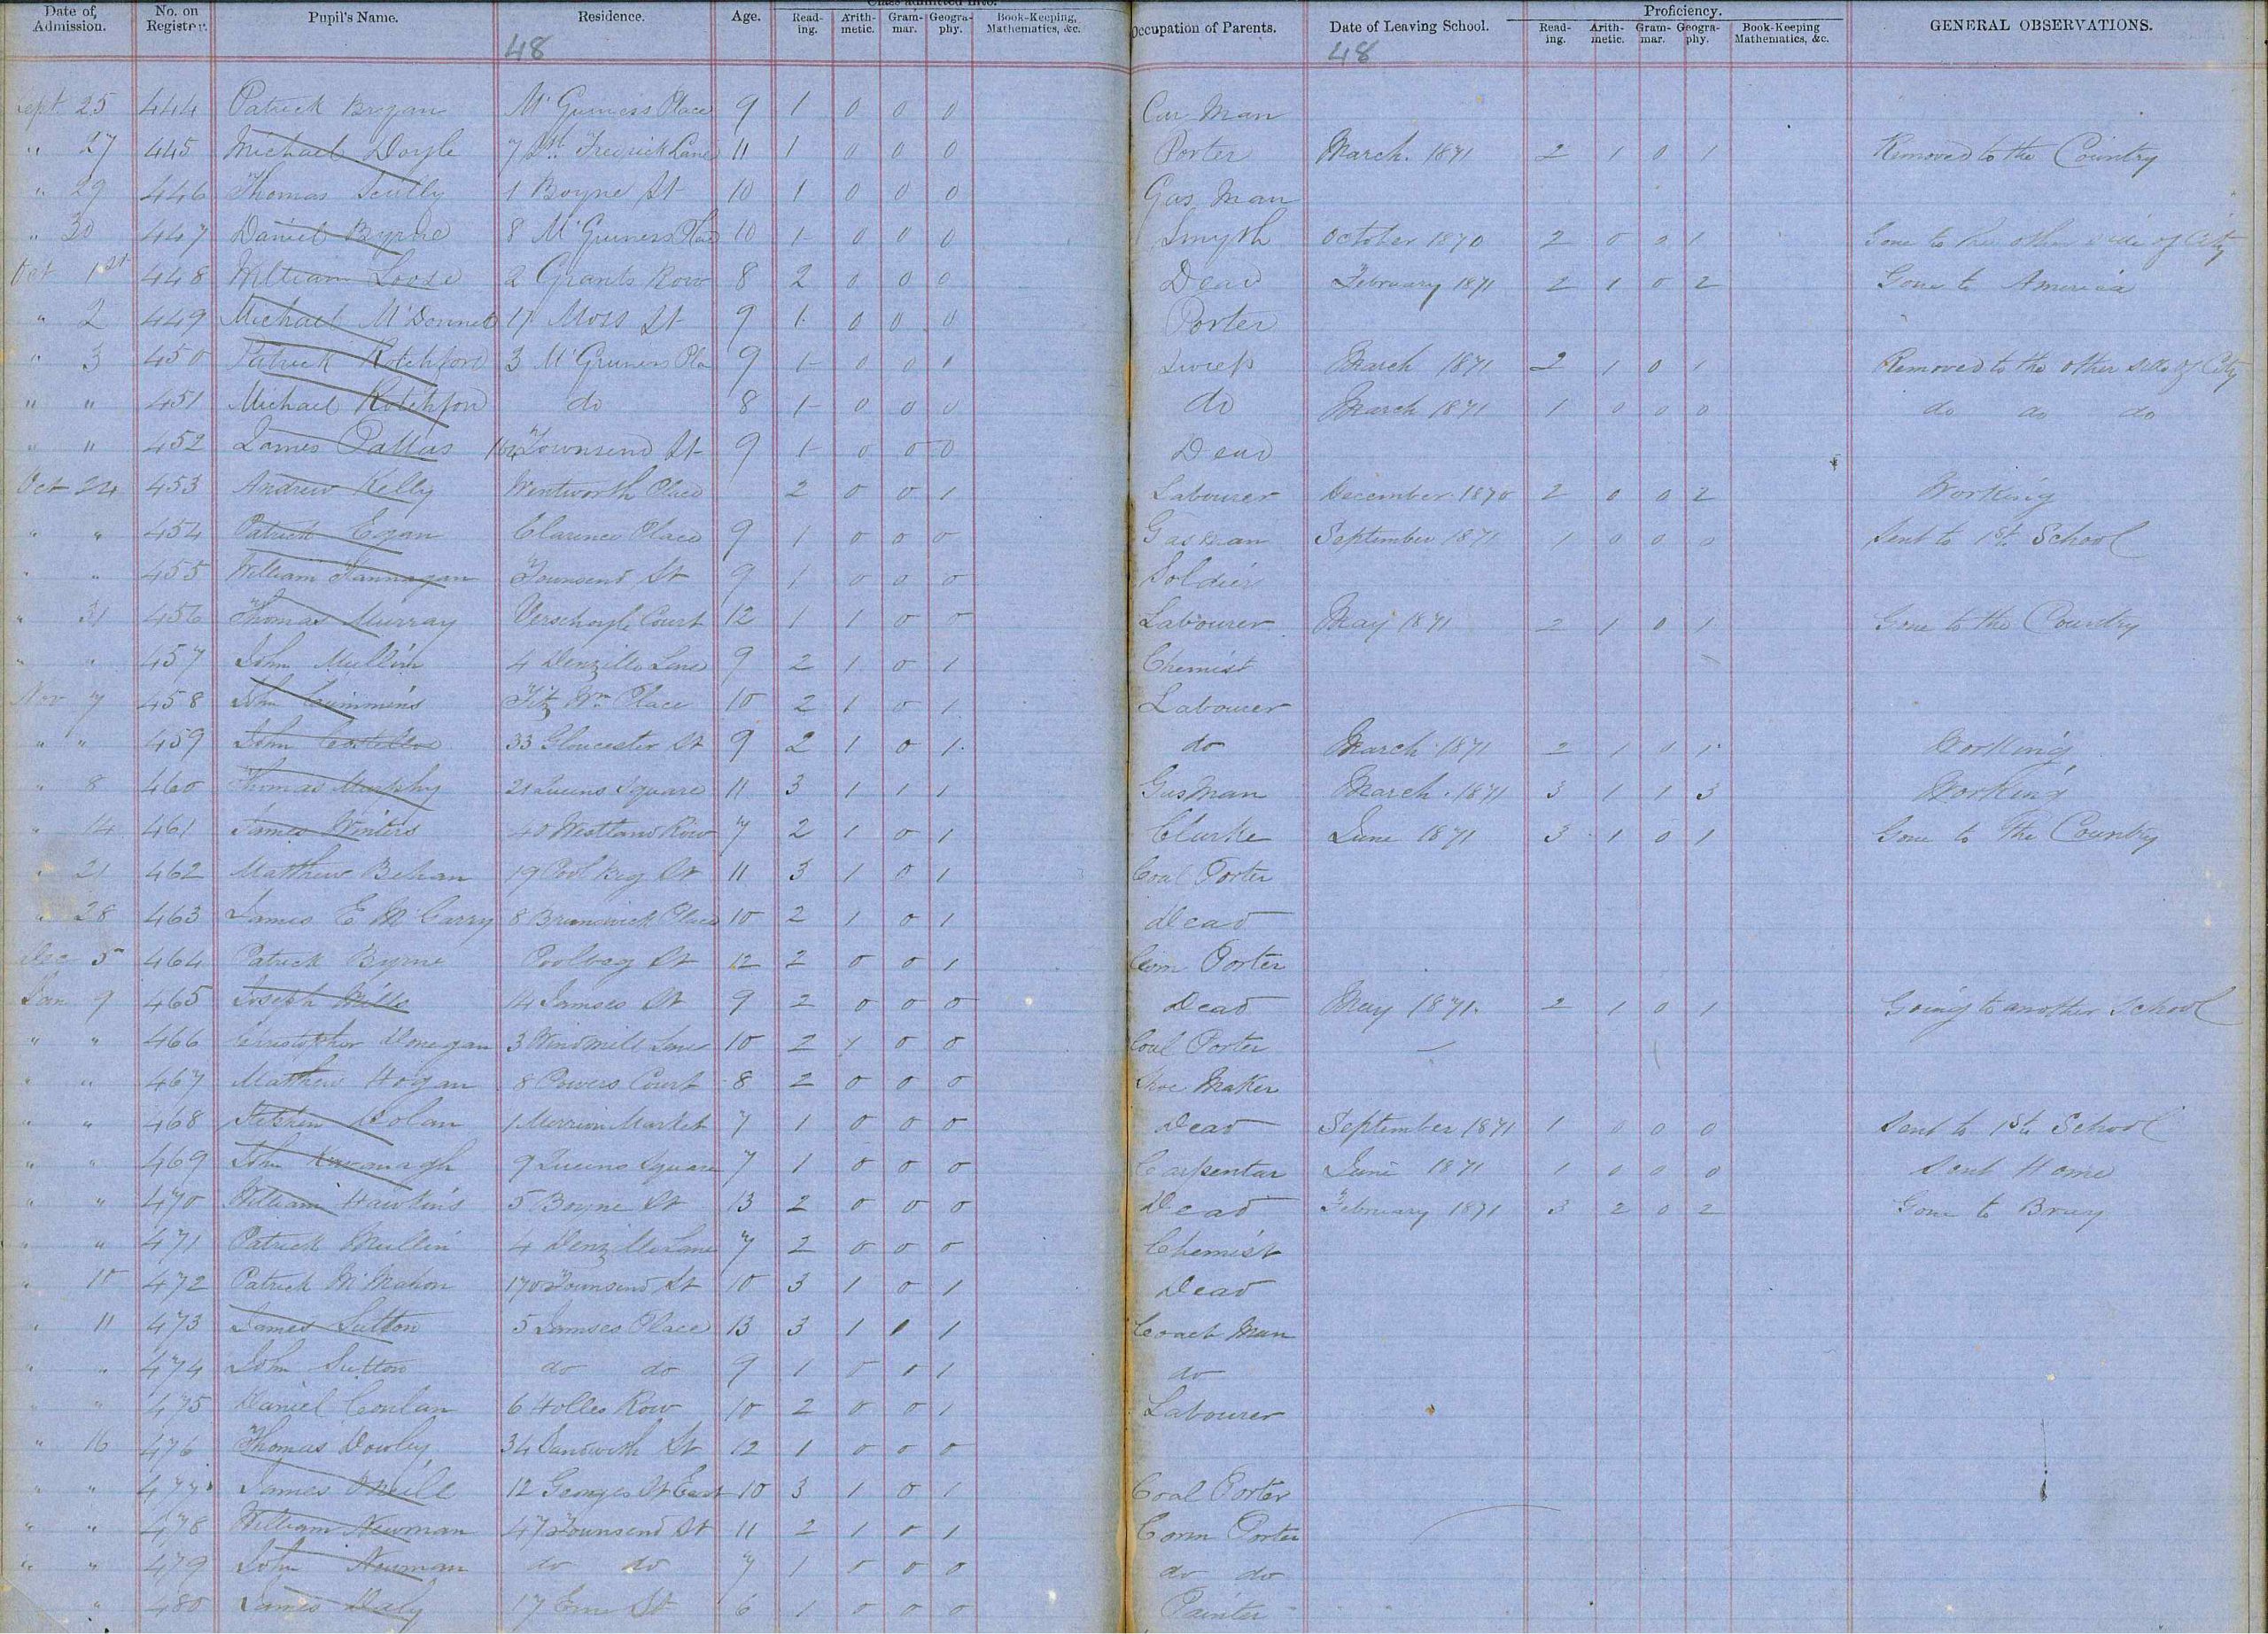 Date of Admission. No. on Register. Pupil's Name. Residence. Age. Class admitted into. Reading. Arithmetic. Grammar. Geography. Book-Keeping, Mathematics, &c. Occupation of Parents. Date of Leaving School. Proficiency. Reading. Arithmetic. Grammar. Geography. Book-Keeping Mathematics, &c. GENERAL OBSERVATIONS.
48 48
Sept 25 444 Patrick Bryan Mc Guiness Place 9 1 0 0 0 Car Man
" 27 445 Michael Doyle 7 Fredrick Lane 11 1 0 0 0 Porter March. 1871 2 1 0 1 Removed to the Country
" 29 446 Thomas Scully 1 Boyne St 10 1 0 0 0 Gas Man
" 30 447 Daniel Byrne 8 Mc Guiness Place 10 1 0 0 0 Smyth October 1870 2 0 0 1 Gone to the other side of City
Oct 1st 448 William Loose 2 Grants Row 8 2 0 0 0 Dead February 1871 2 1 0 2 Gone to America
" 2 449 Michael McDonnel 17 Moss St 9 1 0 0 0 Porter
" 3 450 Patrick Rotchford 3 Mc Guiness Pla 9 1 0 0 1 Sweep March 1871 2 1 0 1 Removed to the other side of City
" " 451 Michael Rotchford do 8 1 0 0 0 do March 1871 1 0 0 0 do do do
" " 452 James Townsend St 9 1 0 0 0 Dead
Oct 24 453 Andrew Kelly Wentworth Place 2 0 0 1 Labourer December 1870 2 0 0 2 Working
" " 454 Patrick Egan Clarence Place 9 1 0 0 0 Gasman September 1871 1 0 0 0 Sent to 1st School
" " 455 William Fannagan Townsend St 9 1 0 0 0 Soldier
" 31 456 Thomas Murray Verschoyle Court 12 1 1 0 0 Labourer May 1871 2 1 0 1 Gone to the Country
" " 457 John Mullin 4 Denzille Lane 9 2 1 0 1 Chemist
Nov 7 458 John Cummins Fitz Wm Place 10 2 1 0 1 Labourer
" " 459 John Costelloe 33 Gloucester St 9 2 1 0 1 do March 1871 2 1 0 1 Working
" 8 460 Thomas Murphy 21 Queens Square 11 3 1 1 1 Gasman March. 1871 3 1 1 3 Working
" 14 461 James Winters 40 Westland Row 7 2 1 0 1 Clarke June 1871 3 1 0 1 Gone to The Country
" 21 462 Matthew Behan 19 Pool Beg St 11 3 1 0 1 Coal Porter
" 28 463 James E McCarry 8 Brunswick Place 10 2 1 0 1 Dead
Dec 5 464 Patrick Byrne Poolbeg St 12 2 0 0 1 Corn Porter
Jan 9 465 Joseph Mills 14 Jamses St 9 2 0 0 0 Dead May 1871. 2 1 0 1 Going to another School
" " 466 Christopher Donegan 3 Windmill Lane 10 2 1 0 0 Coal Porter
" " 467 Matthew Hogan 8 Powers Court 8 2 0 0 0 Shoe Maker
" " 468 Stephen Bolan 1 Merrion Market 7 1 0 0 0 Dead September 1871 1 0 0 0 Sent to 1st School
" " 469 John Kavanagh 9 Queens Square 7 1 0 0 0 Carpentar June 1871 1 0 0 0 Sent Home
" " 470 William Hawkins 5 Boyne St 13 2 0 0 0 Dead February 1871 3 2 0 2 Gone to Bray
" " 471 Patrick Mullin 4 Denzille Lane 7 2 0 0 0 Chemist
" 10 472 Patrick McMahon 170 Townsend St 10 3 1 0 1 Dead
" 11 473 James Sutton 5 Jamses Place 13 3 1 1 1 Coach Man
" " 474 John Sutton do do 9 1 0 0 1 do
" " 475 Daniel Conlan 6 Holles Row 10 2 0 0 1 Labourer
" 16 476 Thomas Dowley 34 Sandwith St 12 1 0 0 0
" " 477 James Oneill 12 Georges St East 10 3 1 0 1 Coal Porter
" " 478 William Newman 47 Townsend St 11 2 1 0 1 Corn Porter
" " 479 John Newman do do 7 1 0 0 0 do do
" 480 James Daly 17 Erne St 6 1 0 0 0 Painter